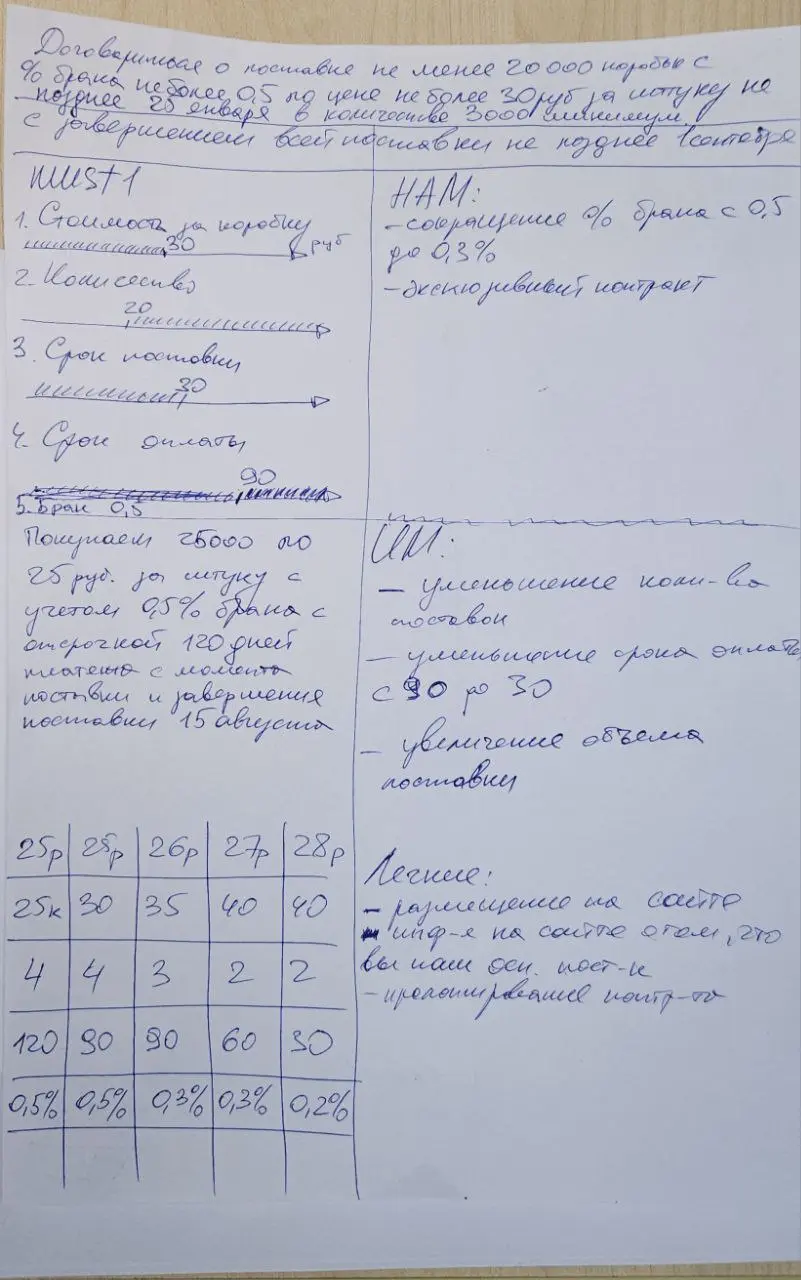 Договориться о поставке не менее 20 000 коробок с
% брака не более 0,5 по цене не более 30 руб за штуку не
позднее 25 января в количестве 3000 минимум.
с завершением всей поставки не позднее 1 сентября
MUST 1
1. Стоимость за коробку
30 руб
2. Количество
20
3. Срок поставки
30
4. Срок оплаты
90
5. Брак 0,5
НАМ:
- сокращение % брака с 0,5
до 0,3%
- эксклюзивный контракт
Покупаем 25000 по
25 руб. за штуку с
учетом 0,5% брака с
отсрочкой 120 дней
платежа с момента
поставки и завершения
поставки 15 августа
ИМ:
- уменьшение кол-ва
поставок
- уменьшение срока оплаты
с 90 до 30
- увеличение объема
поставки
25р 25р 26р 27р 28р
25к 30 35 40 40
4 4 3 2 2
120 90 90 60 30
0,5% 0,5% 0,3% 0,3% 0,2%
Легкие:
- размещение на сайте
инф-я на сайте о том, что
вы наш осн. пост-к
- пролонгирование контр-та